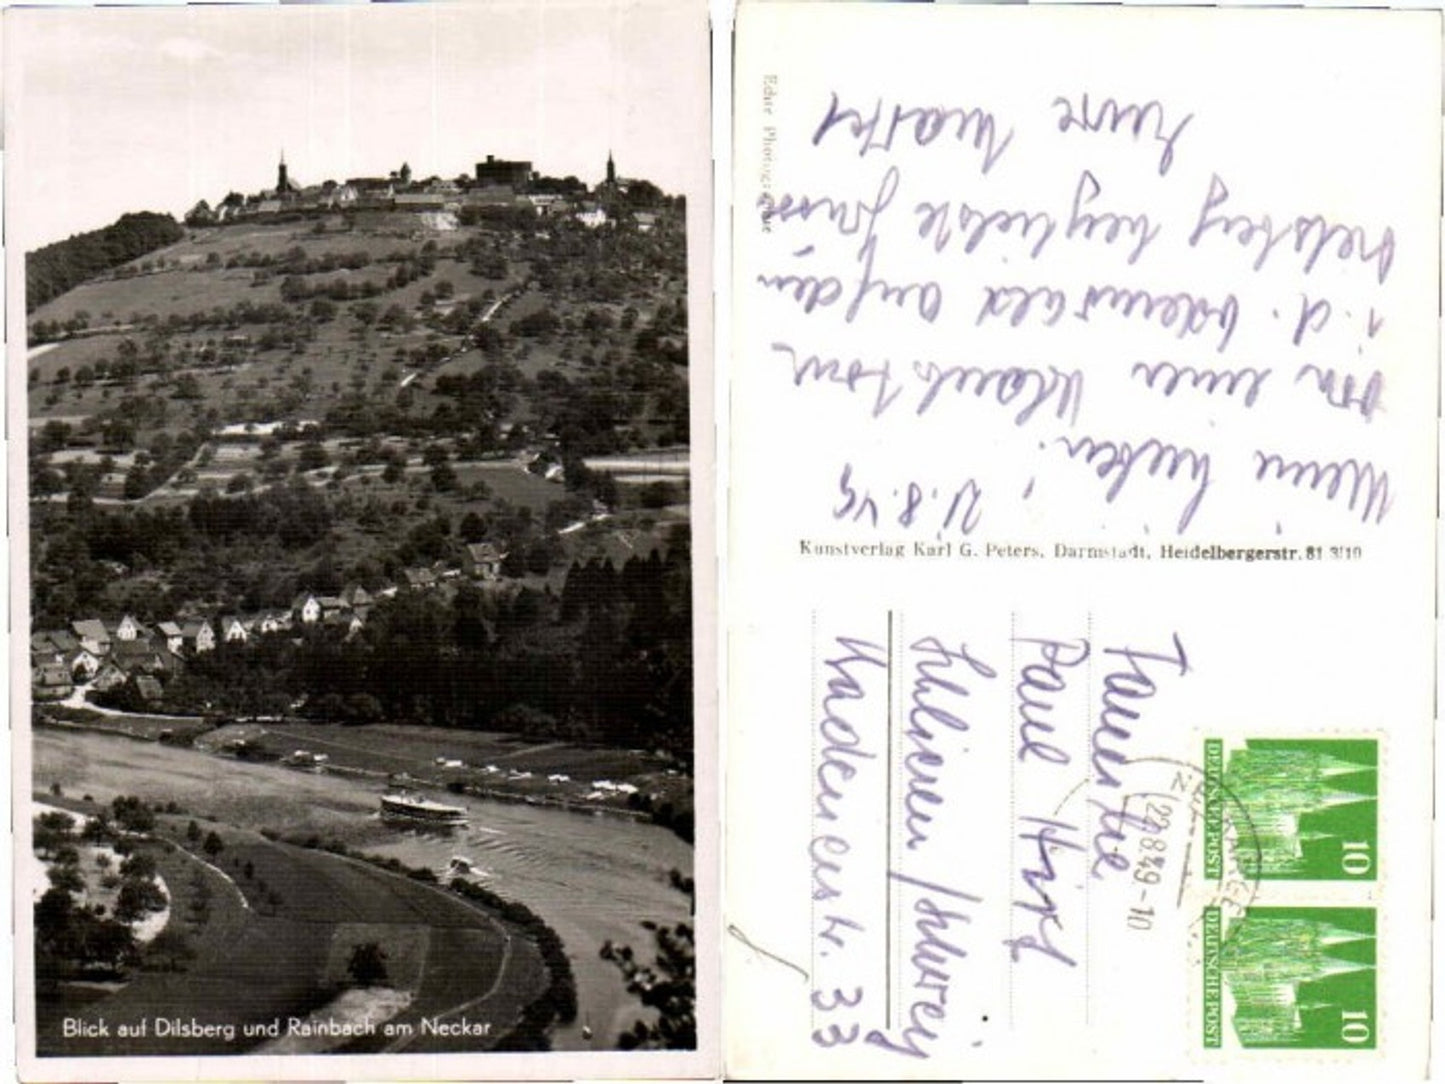 Blick auf Dilsberg und Rainbach am Neckar
Echte Photographie
Meine Lieben!
21.8.49
von einer
i.d. Odenwald auf den
Dilsberg herzlichste Grüsse
Eure
Kunstverlag Karl G. Peters, Darmstadt, Heidelbergerstr. 81 3/10
Familie
Paul
Schlieren / Schweiz
33
22.8.49-10
DEUTSCHE POST
10
DEUTSCHE POST
10